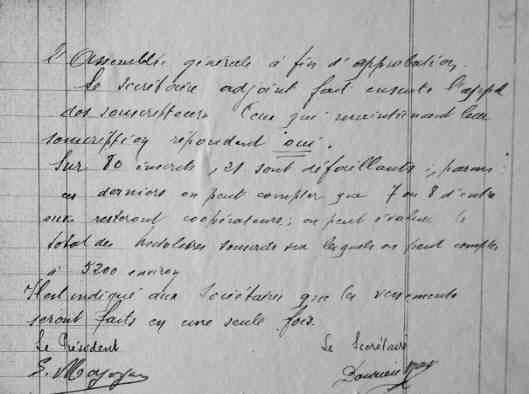 l'Assemblée générale à fin d'approbation.
Le secrétaire adjoint fait ensuite l'appel
des souscripteurs Ceux qui maintiennent leur
souscription répondent oui.
Sur 80 inscrits, 21 sont défaillants; parmi
ces derniers on peut compter que 7 ou 8 d'entre
eux resteront coopérateurs; on peut évaluer le
total des hectolitres souscrits sur lesquels on peut compter
à 5200 environ
Il est indiqué aux Sociétaires que les versements
seront faits en une seule fois.
Le Président
Le Secrétaire